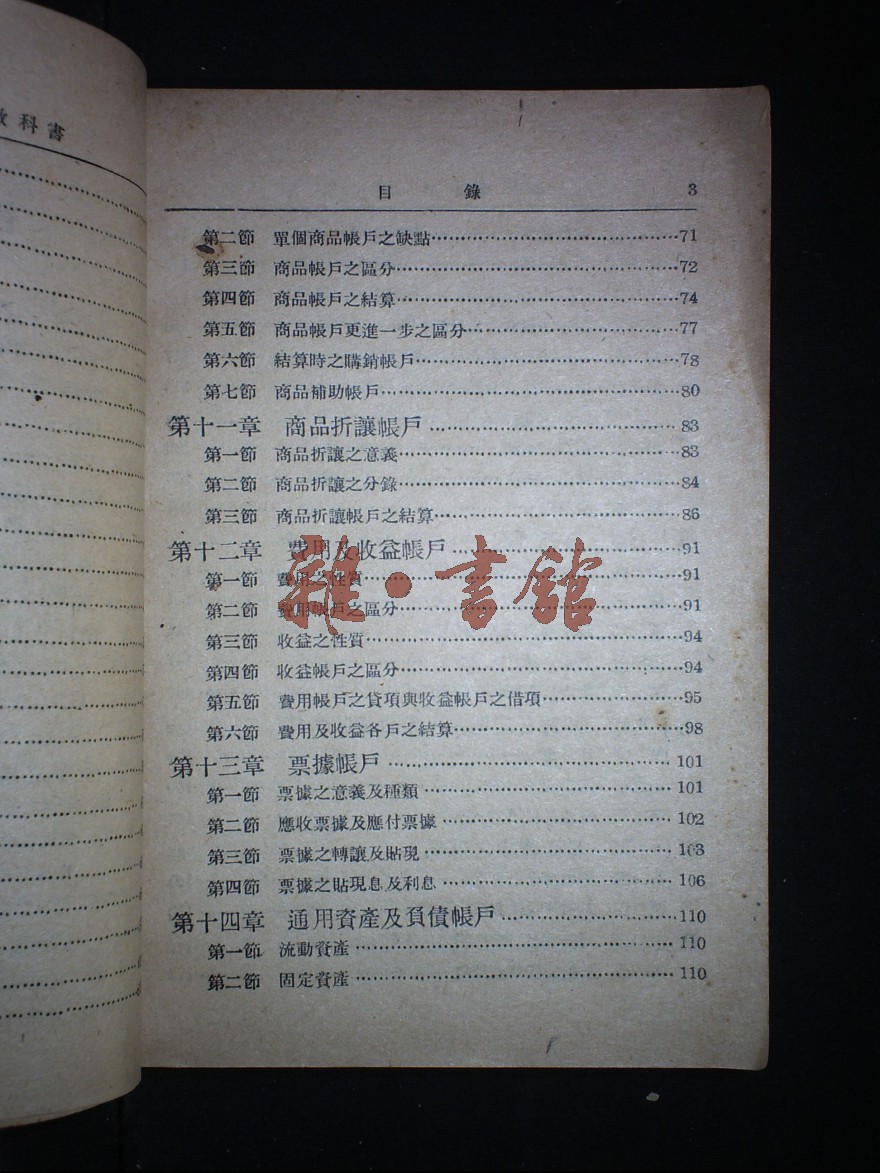 科書
目錄 3
第二節 單個商品帳戶之缺點……71
第三節 商品帳戶之區分……72
第四節 商品帳戶之結算……74
第五節 商品帳戶更進一步之區分……77
第六節 結算時之購銷帳戶……78
第七節 商品補助帳戶……80
第十一章 商品折讓帳戶……83
第一節 商品折讓之意義……83
第二節 商品折讓之分錄……84
第三節 商品折讓帳戶之結算……86
第十二章 費用及收益帳戶……91
第一節 費用之性質……91
第二節 費用帳戶之區分……91
第三節 收益之性質……94
第四節 收益帳戶之區分……94
第五節 費用帳戶之貸項與收益帳戶之借項……95
第六節 費用及收益各戶之結算……98
第十三章 票據帳戶……101
第一節 票據之意義及種類……101
第二節 應收票據及應付票據……102
第三節 票據之轉讓及貼現……103
第四節 票據之貼現息及利息……106
第十四章 通用資產及負債帳戶……110
第一節 流動資產……110
第二節 固定資產……110
雜·書館